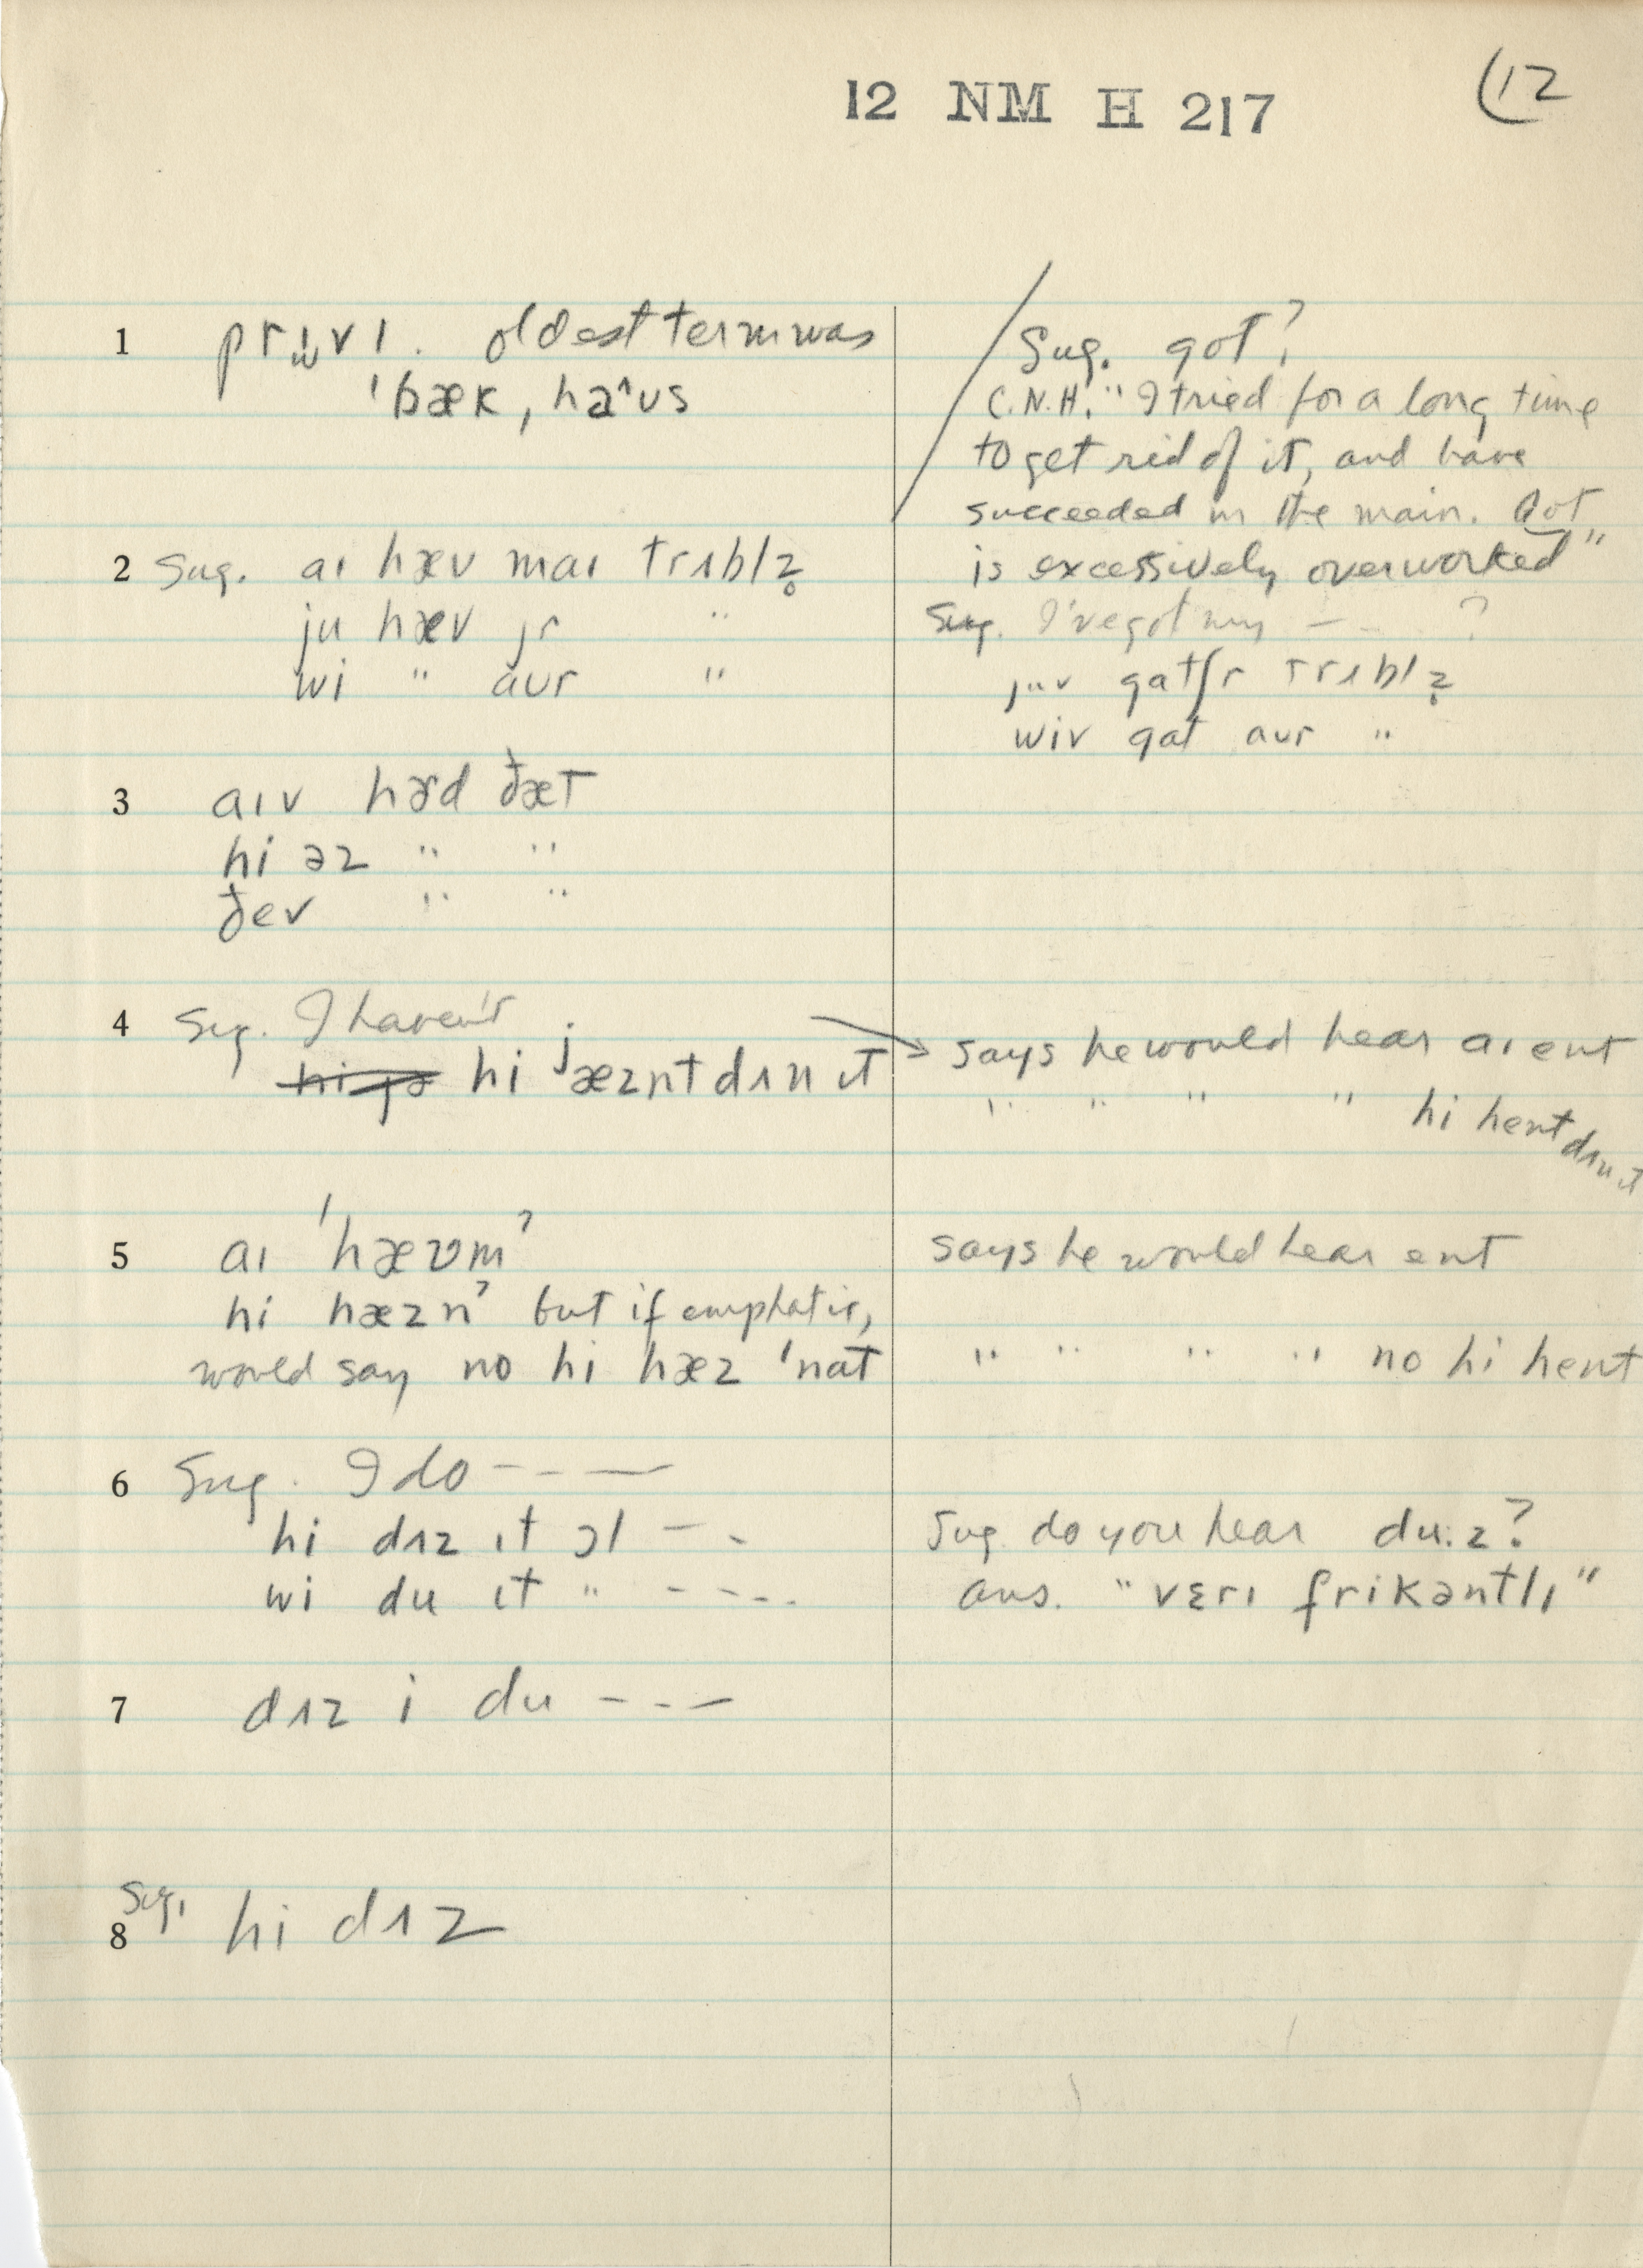 12 NM H 217
12
1 prɪvɪ. oldest term was
ˈbæk, haˆʊs
Sug. got?
C.N.H. "I tried for a long time
to get rid of it, and have
succeeded in the main. Got
is excessively overworked"
2 Sug. aɪ hæv maɪ trʌblz̥
ju hæv jr "
wi " aur "
Sug. I've got my — - ?
juv gatʃr trʌblz̥
wiv gat aur "
3 aɪv hɚd ðæt
hi əz " "
ðev " "
4 Sug. I haven't
hi jæznt dʌn ɪt
says he would hear aɪ ent
" " " " hi hent dʌn ɪt
5 aɪ ˈhævmˀ
hi hæznˀ but if emphatic,
would say no hi hæz ˈnat
says he would hear ent
" " " " no hi hent
6 Sug. I do - - - —
hi dʌz ɪt ɔl — -
wi du ɪt " - - - .
Sug do you hear du:z?
ans. "vɛrɪ frikəntlɪ"
7 dʌz i du - - —
Sug.
8 hi dʌz